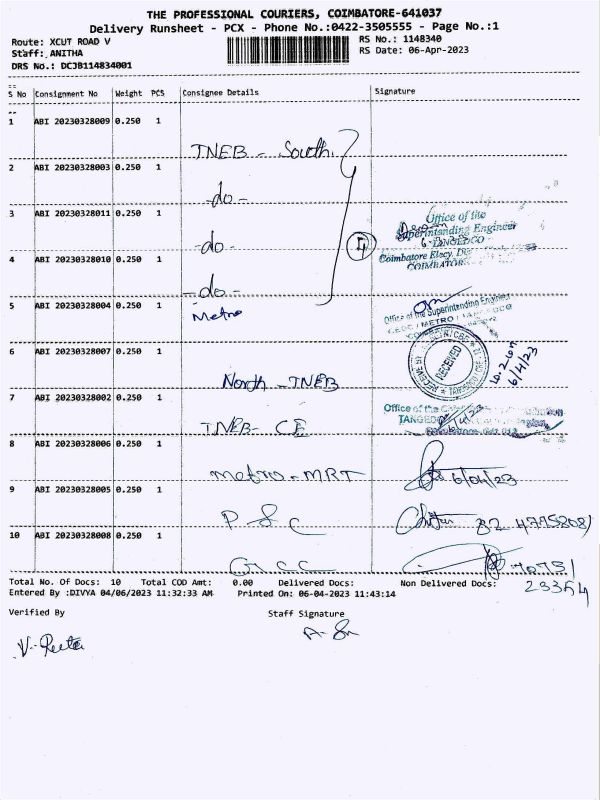 THE PROFESSIONAL COURIERS, COIMBATORE-641037
Delivery Runsheet - PCX - Phone No.:0422-3505555 - Page No.:1
Route: XCUT ROAD V
RS No.: 1148340
Staff: ANITHA
RS Date: 06-Apr-2023
DRS No.: DCJB114834001
S No Consignment No Weight PCS Consignee Details Signature
1 ABI 20230328009 0.250 1
TNEB - South
2 ABI 20230328003 0.250 1
-do-
3 ABI 20230328011 0.250 1
Office of the
Superintending Engineer
TANGEDCO
-do-
4
4 ABI 20230328010 0.250 1
Coimbatore Elecy.
COIMBATORE
-do-
5 ABI 20230328004 0.250 1
Metro
Office of the Superintending Engineer
METRO
6 ABI 20230328007 0.250 1
RECEIVED
10.20
6/4/23
North - TNEB
7 ABI 20230328002 0.250 1
Office of the
TANGEDCO
TNEB - CE
8 ABI 20230328006 0.250 1
Metro - MRT
6/04/23
9 ABI 20230328005 0.250 1
P S C
10 ABI 20230328008 0.250 1
G CC
Total No. Of Docs: 10 Total COD Amt: 0.00 Delivered Docs: Non Delivered Docs:
Entered By :DIVYA 04/06/2023 11:32:33 AM Printed On: 06-04-2023 11:43:14
Verified By Staff Signature